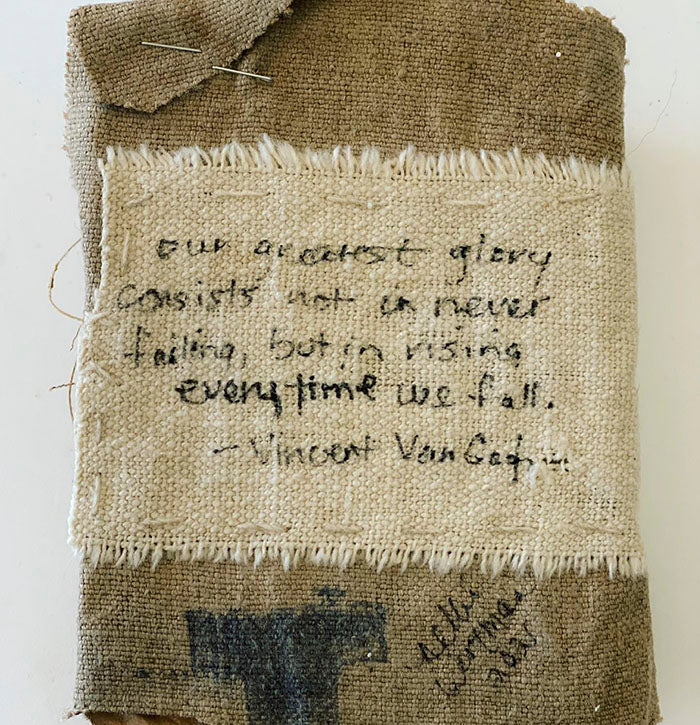 our greatest glory
consists not in never
failing, but in rising
every time we fall.
- Vincent Van